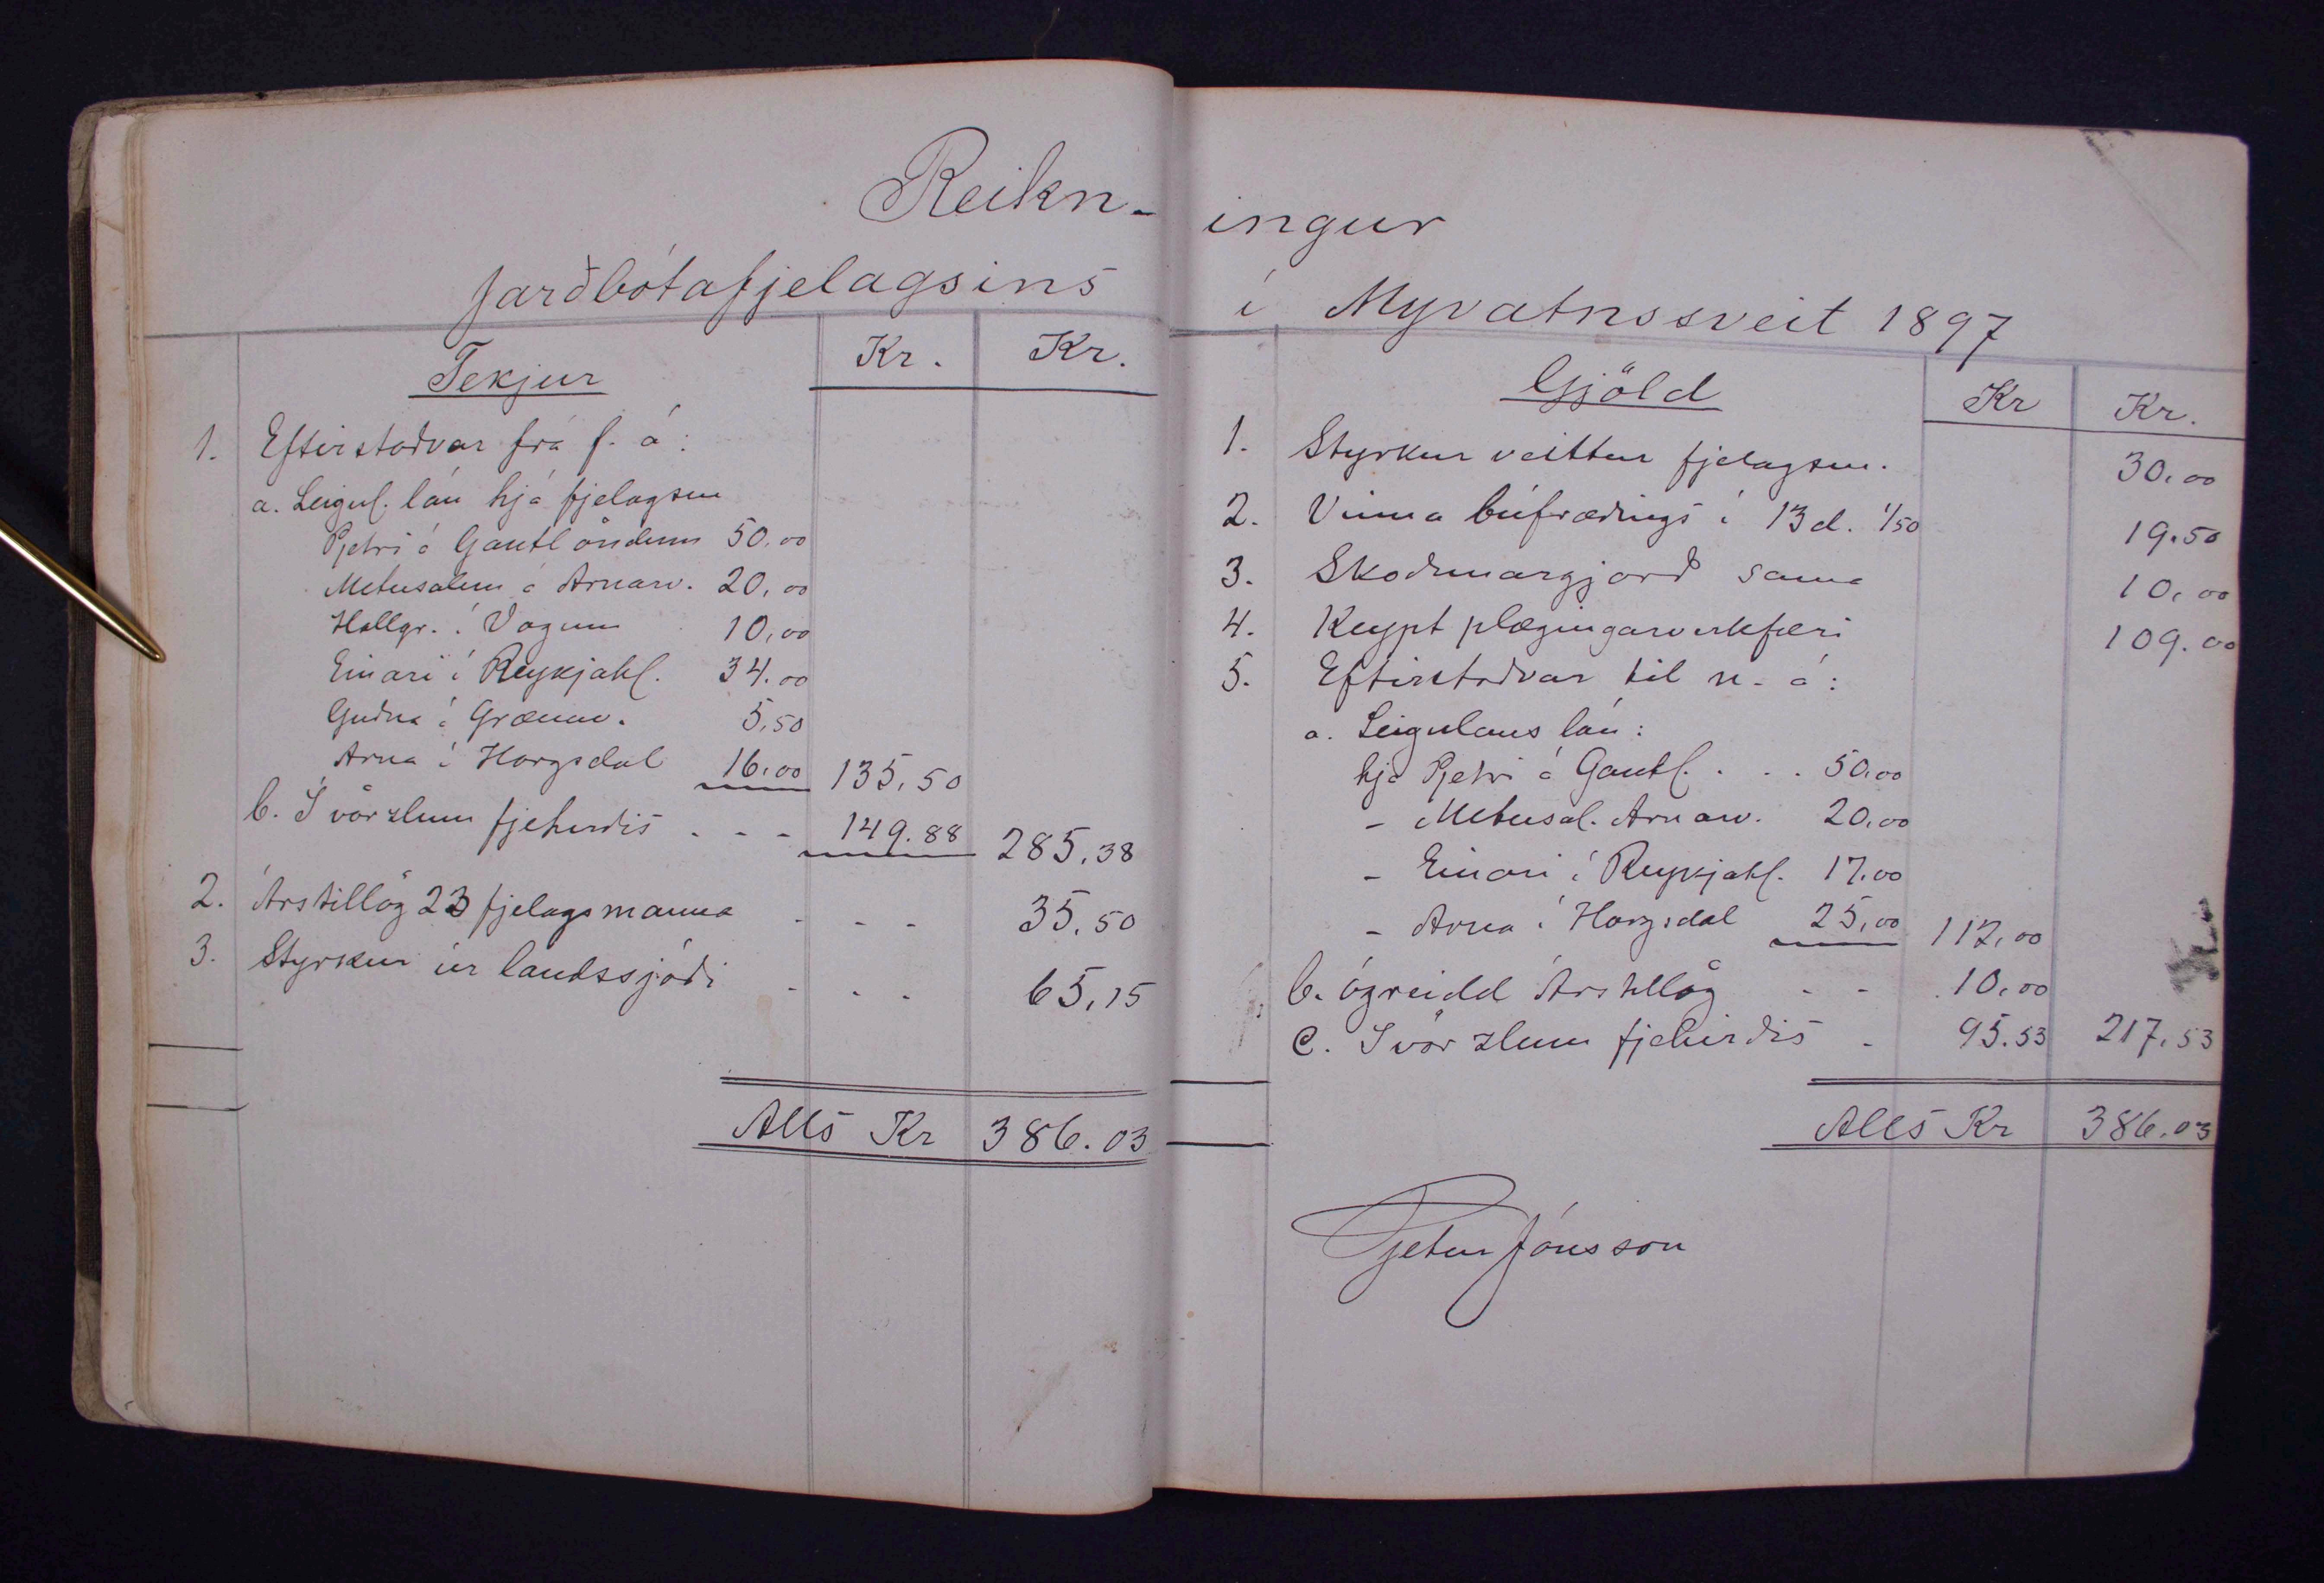 Reikn-
Jarðbótafjelagsins
Tekjur Kr. Kr.
1. Eftirstoðvar frá f. á:
a. Leigul. lán hjá fjelagsm
Pjetri á Gautlöndum 50.00
Metusalem á Arnarv. 20,00
Hallgr. í Vogum 10,00
Einari í Reykjahl. 34.00
Guðna á Grænav. 5,50
Arna í Horgsdal 16.00 135,50
b. I vörzlum fjehirdis - - - 149.88 285,38
2. Árstillög 23 fjelagsmanna - - - 35,50
3. Styrkur úr landssjóði - - - 65,15
Alls Kr 386.03
ingur
í Myvatnssveit 1897
Gjöld Kr Kr.
1. Styrkur veittur fjelagsm. 30,00
2. Vinna búfræðings í 13 d. 1/50 19.50
3. Skoðunargjorð sama 10,00
4. Keypt plægingarverkfæri 109.00
5. Eftirstoðvar til n. á:
a. Leigulaus lán:
hjá Pjetri á Gautl. . . . 50.00
- Metusal. Arnarv. 20.00
- Einari í Reykjahl. 17.00
- Arna í Horgsdal 25,00 112,00
b. ógreidd Árstillög - - 10,00
c. I vörzlum fjehirdis - 95.53 217,53
Alls Kr 386.03
Pjetur Jónsson